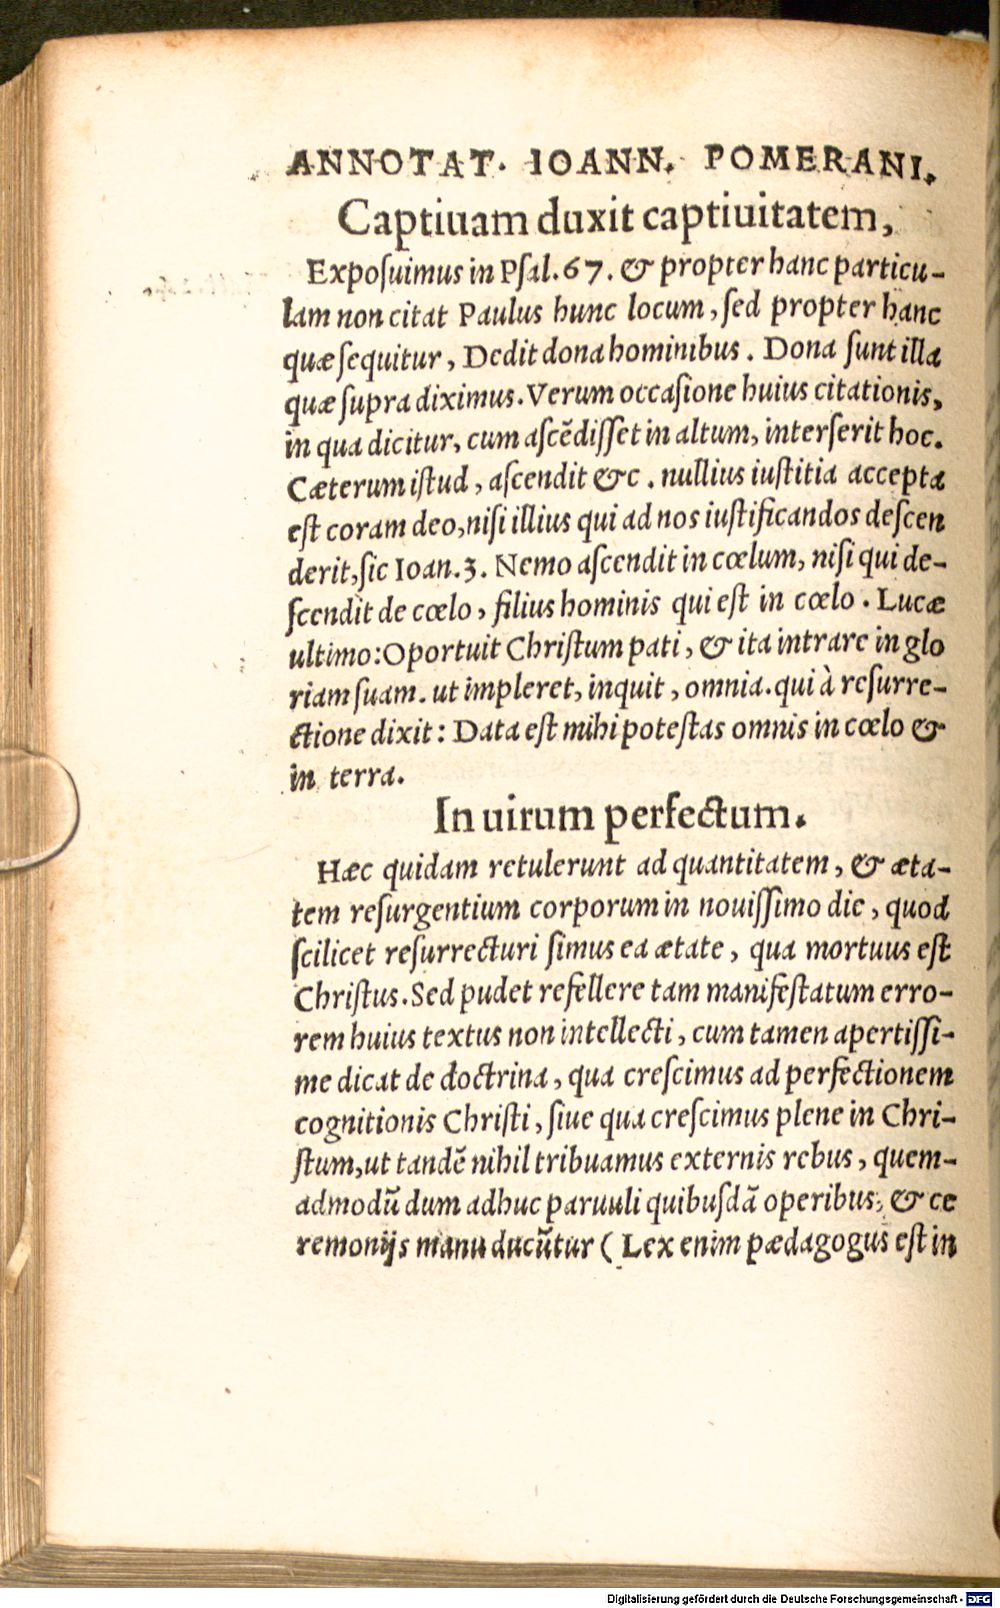 ANNOTAT. IOANN. POMERANI.
Captiuam duxit captiuitatem,
Exposuimus in Psal. 67. & propter hanc particu-
lam non citat Paulus hunc locum, sed propter hanc
quæ sequitur, Dedit dona hominibus. Dona sunt illa
quæ supra diximus. Verum occasione huius citationis,
in qua dicitur, cum ascēdisset in altum, interserit hoc.
Cæterum istud, ascendit &c. nullius iustitia accepta
est coram deo, nisi illius qui ad nos iustificandos descen
derit, sic Ioan. 3. Nemo ascendit in cœlum, nisi qui de-
scendit de cœlo, filius hominis qui est in cœlo. Lucæ
ultimo: Oportuit Christum pati, & ita intrare in glo
riam suam. ut impleret, inquit, omnia. qui à resurre-
ctione dixit: Data est mihi potestas omnis in cœlo &
in terra.
In uirum perfectum.
Hæc quidam retulerunt ad quantitatem, & æta-
tem resurgentium corporum in nouissimo die, quod
scilicet resurrecturi simus ea ætate, qua mortuus est
Christus. Sed pudet refellere tam manifestatum erro-
rem huius textus non intellecti, cum tamen apertissi-
me dicat de doctrina, qua crescimus ad perfectionem
cognitionis Christi, siue qua crescimus plene in Chri-
stum, ut tandē nihil tribuamus externis rebus, quem-
admodū dum adhuc paruuli quibusdā operibus, & ce
remonijs manu ducūtur ( Lex enim pædagogus est in
Digitalisierung gefördert durch die Deutsche Forschungsgemeinschaft - DFG